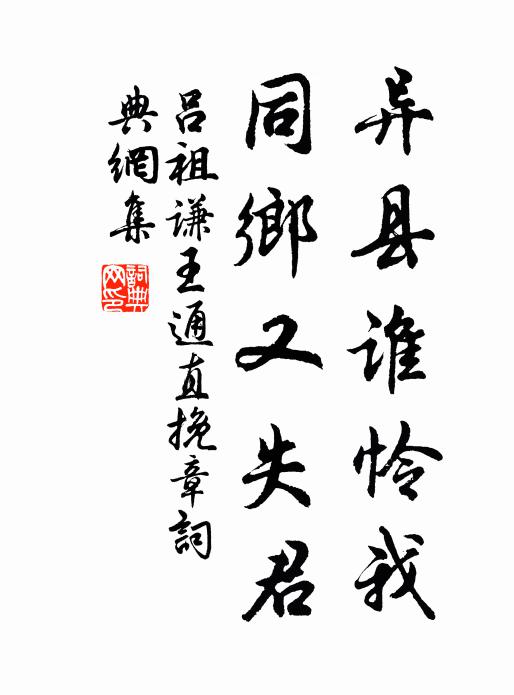 异县谁怜我
同鄉又失君
吕祖谦王通直挽章詞
典網集
詞典網印